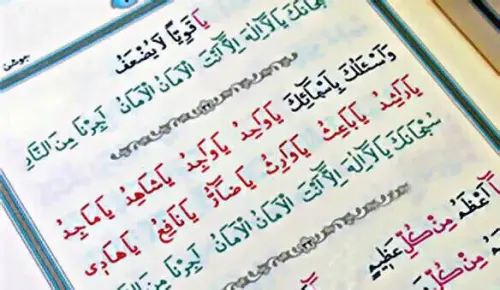 جوشن
يَا قَوِيًّا لَا يُضْعَفُ
حَانَكَ يَا لَا اِلٰهَ اِلَّا اَنْتَ الْاَمَانُ الْاَمَانُ اَجِرْنَا مِنَ النَّارِ
وَاَسْئَلُكَ بِاَسْمَائِكَ يَا وَاحِدُ يَا وَاجِدُ يَا شَاهِدُ يَا مَاجِدُ
يَا رَاشِدُ يَا بَاعِثُ يَا وَارِثُ يَا ضَارُّ يَا نَافِعُ يَا هَادِى
سُبْحَانَكَ يَا لَا اِلٰهَ اِلَّا اَنْتَ الْاَمَانُ الْاَمَانُ اَجِرْنَا مِنَ
اَعْظَمُ مِنْ كُلِّ عَظِيمٍ
مِنْ كُلِّ